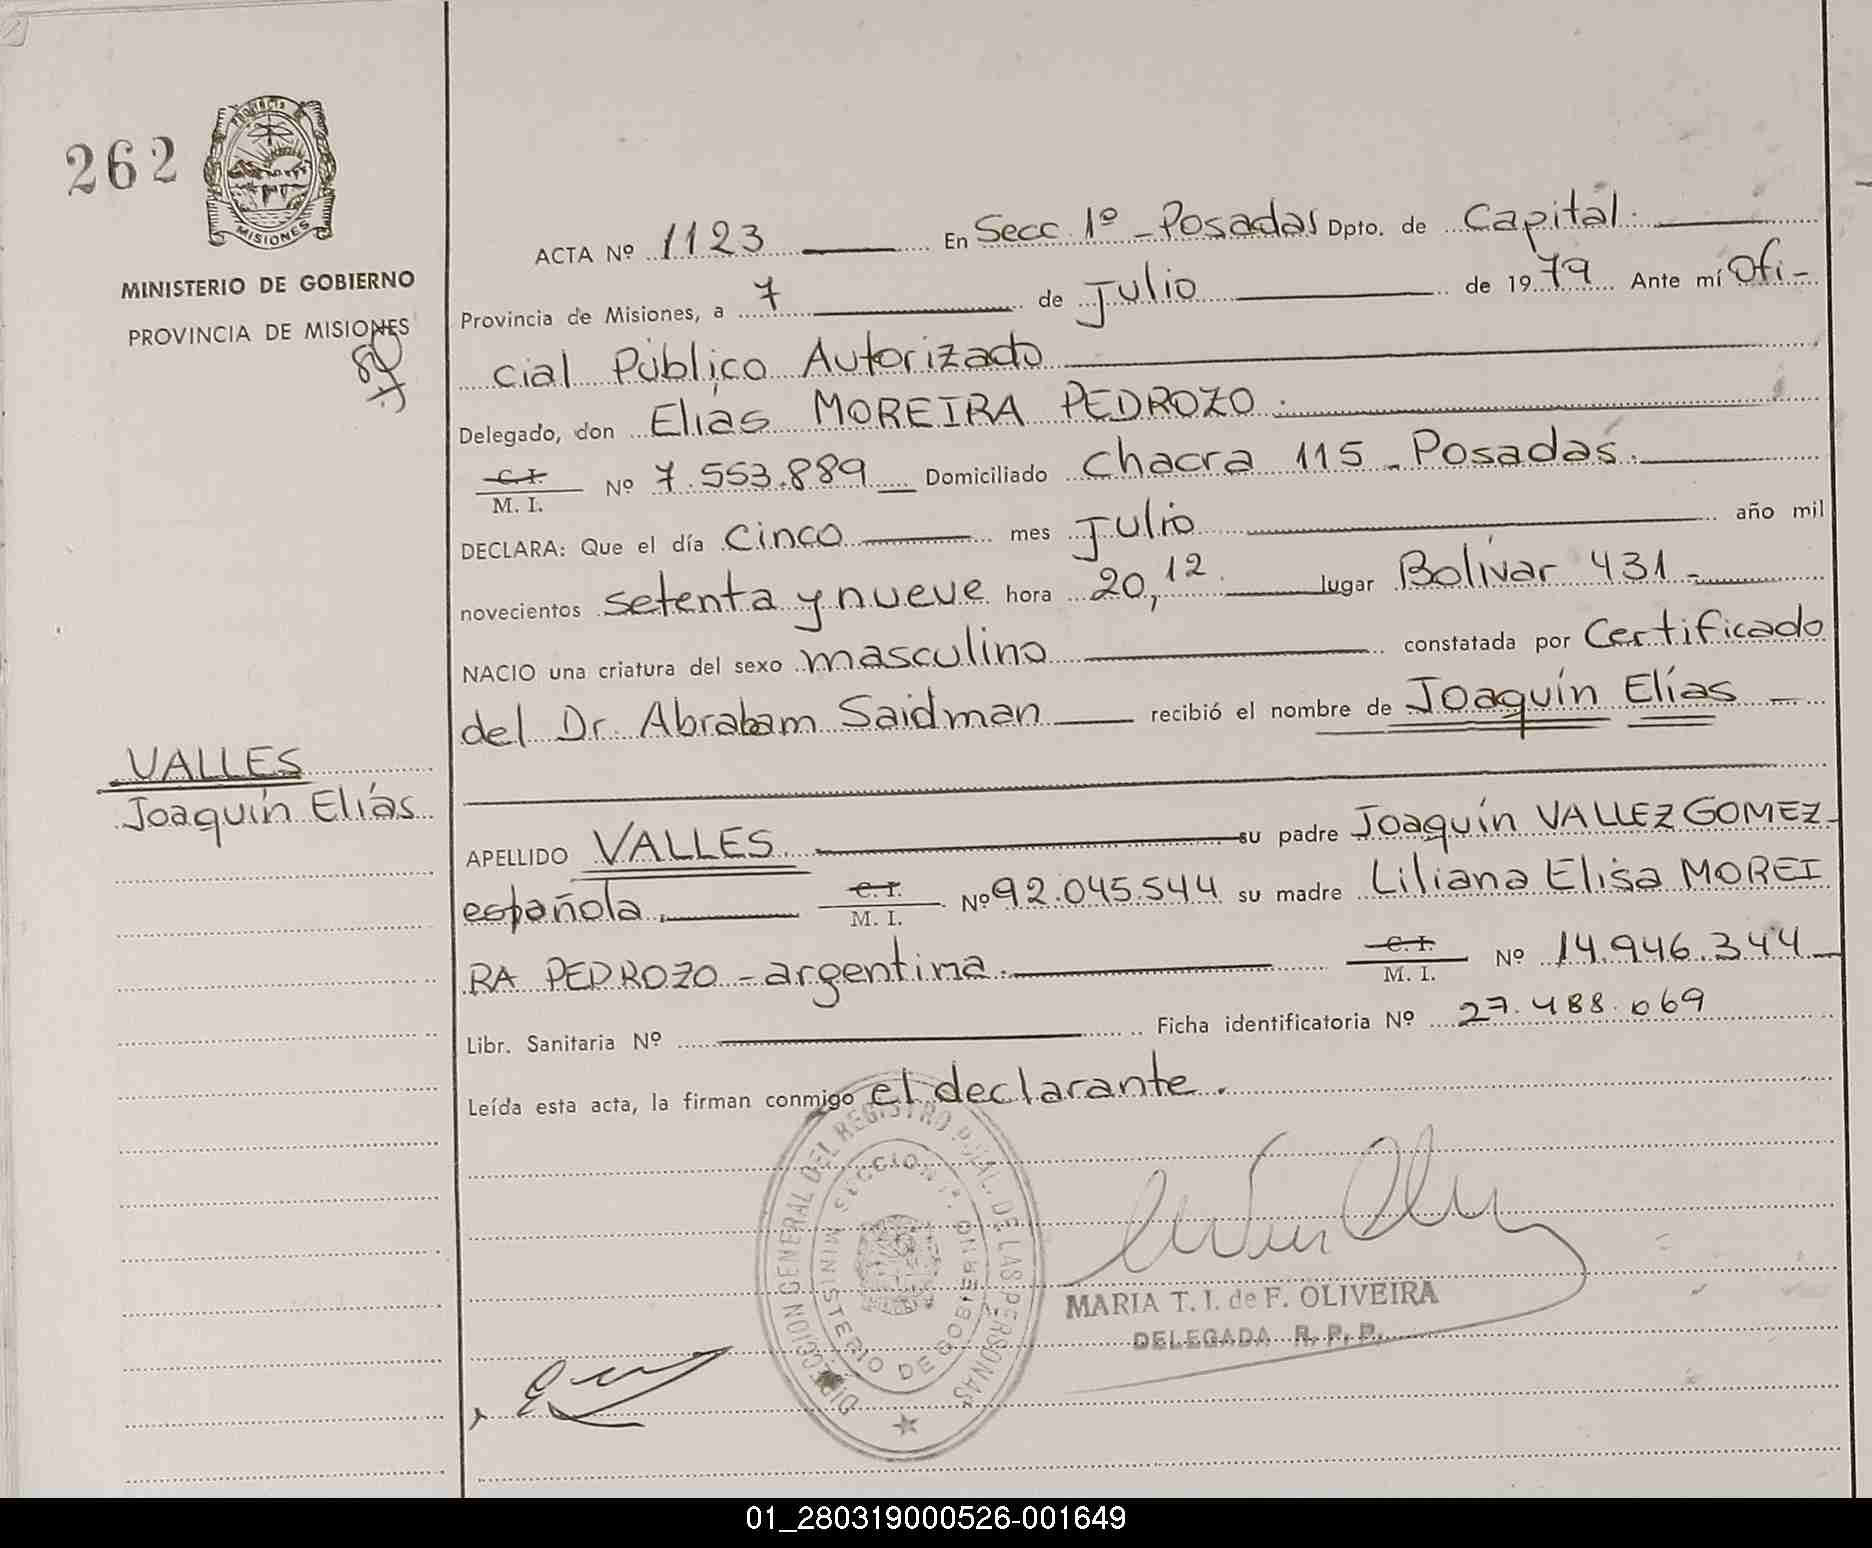 262
PROVINCIA
MISIONES
MINISTERIO DE GOBIERNO
PROVINCIA DE MISIONES
VALLES
Joaquín Elías
ACTA Nº 1123 En Secc 1º - Posadas Dpto. de Capital.
Provincia de Misiones, a 7 de Julio de 1979 Ante mí Ofi-
cial Público Autorizado
Delegado, don Elías MOREIRA PEDROZO.
C. I.
M. I. Nº 7.553.889 Domiciliado Chacra 115 - Posadas.
DECLARA: Que el día Cinco mes Julio año mil
novecientos setenta y nueve hora 20,12. lugar Bolívar 431 -
NACIO una criatura del sexo masculino constatada por Certificado
del Dr. Abraham Saidman recibió el nombre de Joaquín Elías -
APELLIDO VALLES. su padre Joaquín VALLEZ GOMEZ-
española. C. I.
M. I. Nº 92.045.544 su madre Liliana Elisa MOREI
RA PEDROZO - argentina. C. I.
M. I. Nº 14.946.344
Libr. Sanitaria Nº Ficha identificatoria Nº 27.488.069
Leída esta acta, la firman conmigo el declarante.
DIRECCION GENERAL DEL REGISTRO PCIAL. DE LAS PERSONAS
MINISTERIO DE GOBIERNO
SECCION 1ª.
MARIA T. I. de F. OLIVEIRA
DELEGADA R. P. P.
01_280319000526-001649